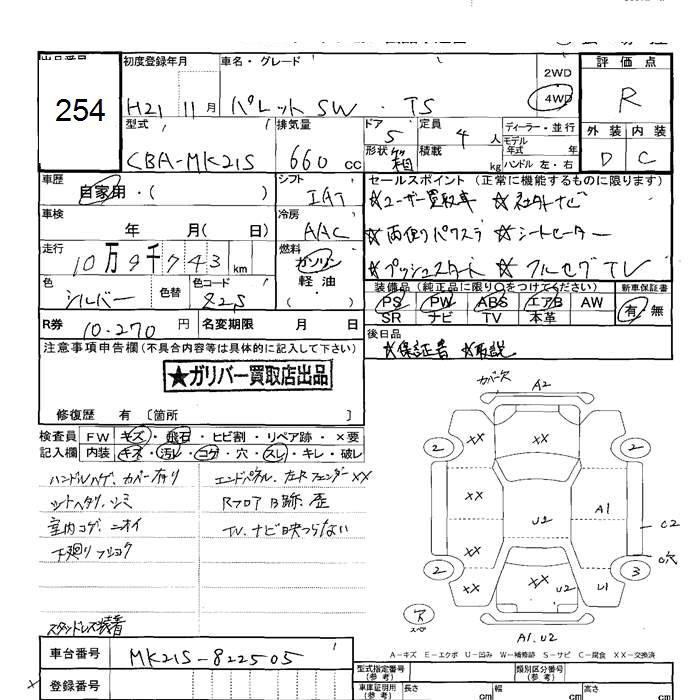 初度登録年月 車名・グレード 評価点
254
H21 11月 パレットSW・TS 2WD 4WD R
型式 排気量 ドア 定員 ディーラー・並行 外装 内装
CBA-MK21S 660 cc 5 4人 モデル年式 年 D C
形状 箱 積載 kg ハンドル 左・右
車歴 自家用・( ) シフト IAT セールスポイント(正常に機能するものに限ります)
☆ユーザー買取車 ☆社外ナビ
車検 年 月( 日) 冷房 AAC
☆両側パワスラ ☆シートヒーター
走行 10万9千743km 燃料 ガソリン 軽油 ( )
☆プッシュスタート ☆フルセグTV
色 シルバー 色替 色コード Z2S
装備品(純正品に限り○をつけてください) 新車保証書
PS PW ABS エアB AW 有・無
SR ナビ TV 本革
R券 10.270円 名変期限 月 日
後日品
☆保証書 ☆取説
注意事項申告欄(不具合内容等は具体的に記入して下さい)
★ガリバー買取店出品
修復歴 有〔箇所 〕
検査員 FW キズ・飛石・ヒビ割・リペア跡・×要
記入欄 内装 キズ・汚レ・コゲ・穴・スレ・キレ・破レ
ハンドルハゲ、カバー有り エンドパネル、左Rフェンダー XX
シートヘタリ、シミ RフロアB跡、歪
室内コゲ、ニオイ TV、ナビ映つらない
下廻りフショク
スタッドレス装着
カバー欠 A2
2 XX XX 2 XX
XX U2 A1 C2
XX ○穴
2 XX XX U2 U1 3
ス スペア
A1.U2
A-キズ E-エクボ U-凹み W-補修跡 S-サビ C-腐食 XX-交換済
車台番号 MK21S-822505
型式指定番号(参考) 類別区分番号(参考)
× 登録番号
車庫証明用(参考) 長さ cm 幅 cm 高さ cm